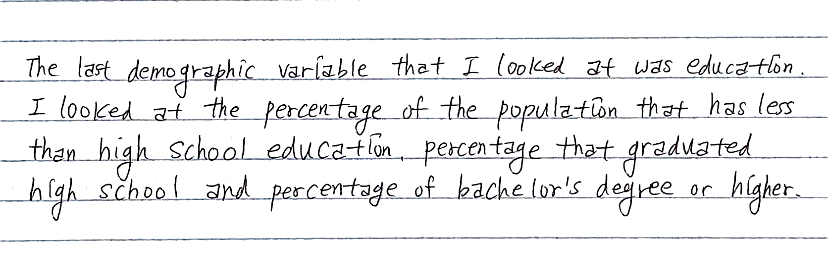 The last demographic variable that I looked at was education.
I looked at the percentage of the population that has less
than high school education, percentage that graduated
high school and percentage of bachelor's degree or higher.